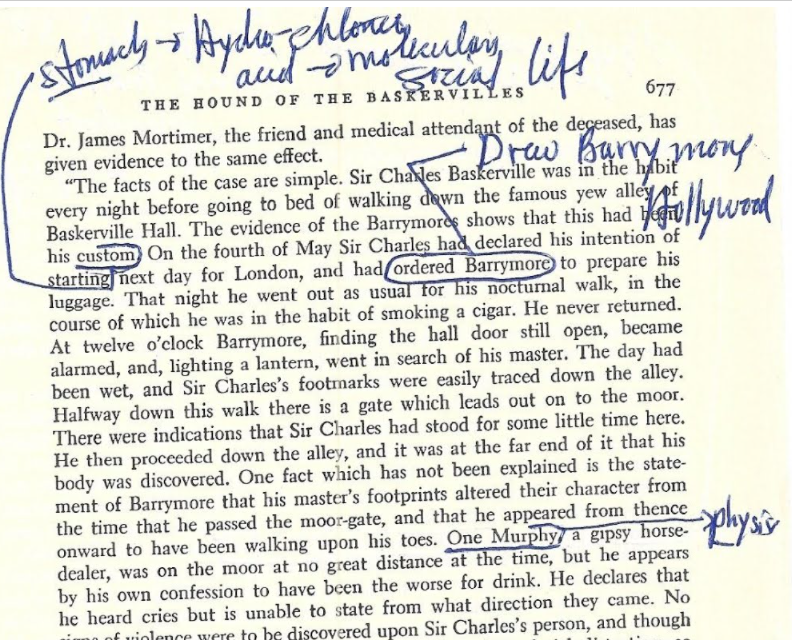 stomach → Hydro-chloric
acid → molecular
social life
THE HOUND OF THE BASKERVILLES 677
Dr. James Mortimer, the friend and medical attendant of the deceased, has
given evidence to the same effect.
Drew Barrymore
Hollywood
“The facts of the case are simple. Sir Charles Baskerville was in the habit
every night before going to bed of walking down the famous yew alley of
Baskerville Hall. The evidence of the Barrymores shows that this had been
his custom. On the fourth of May Sir Charles had declared his intention of
starting next day for London, and had ordered Barrymore to prepare his
luggage. That night he went out as usual for his nocturnal walk, in the
course of which he was in the habit of smoking a cigar. He never returned.
At twelve o’clock Barrymore, finding the hall door still open, became
alarmed, and, lighting a lantern, went in search of his master. The day had
been wet, and Sir Charles’s footmarks were easily traced down the alley.
Halfway down this walk there is a gate which leads out on to the moor.
There were indications that Sir Charles had stood for some little time here.
He then proceeded down the alley, and it was at the far end of it that his
body was discovered. One fact which has not been explained is the state-
ment of Barrymore that his master’s footprints altered their character from
the time that he passed the moor-gate, and that he appeared from thence
onward to have been walking upon his toes. One Murphy, a gipsy horse-
physis
dealer, was on the moor at no great distance at the time, but he appears
by his own confession to have been the worse for drink. He declares that
he heard cries but is unable to state from what direction they came. No
signs of violence were to be discovered upon Sir Charles’s person, and though